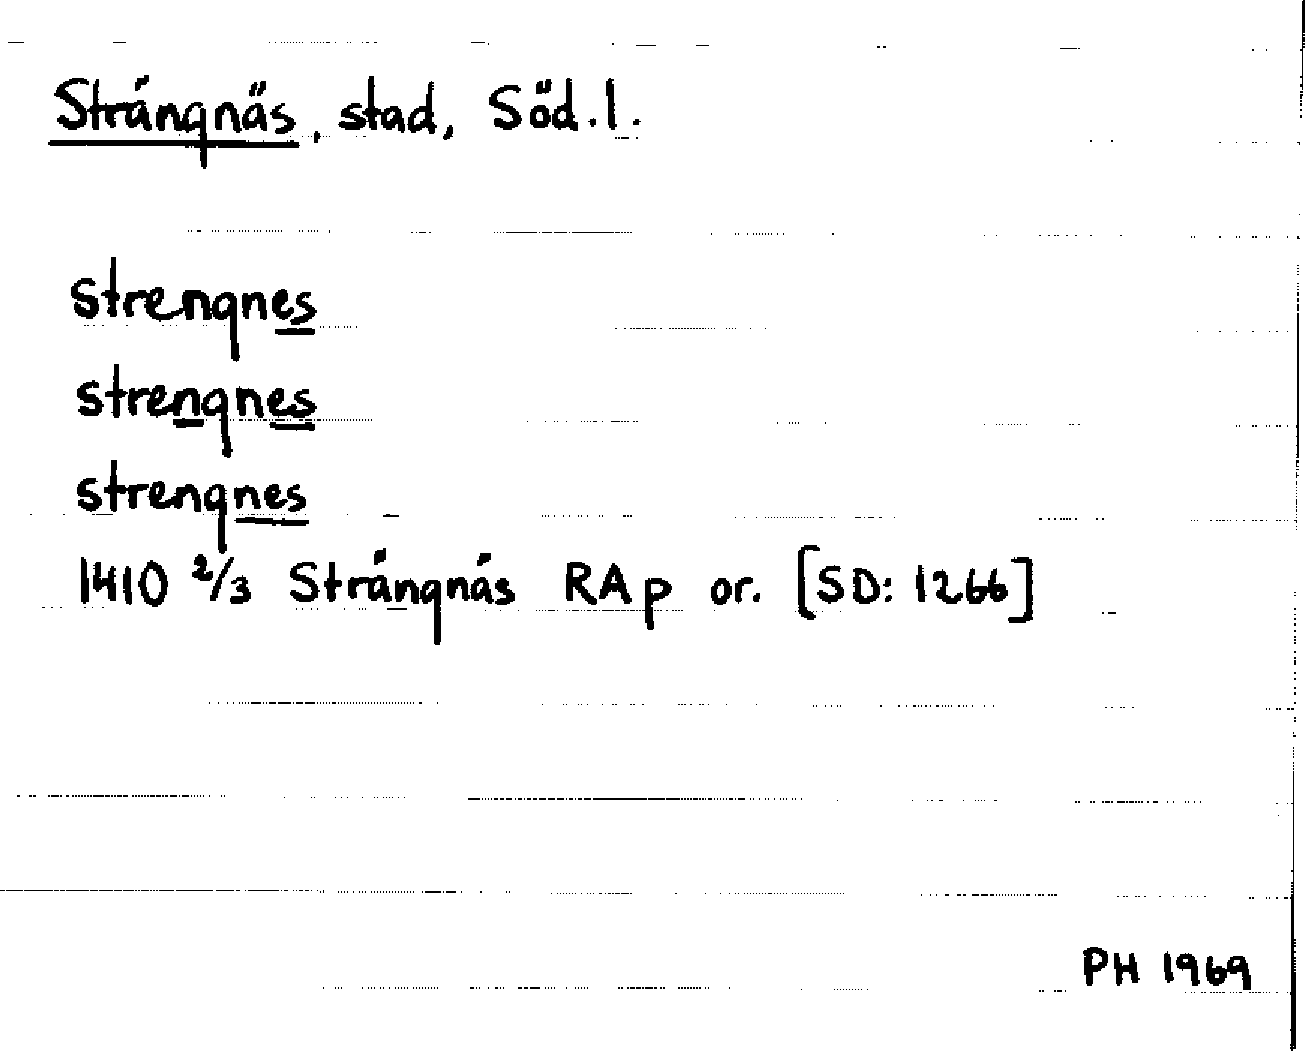 Strängnäs, stad, Söd.l.
strengnes
strengnes
strengnes
1410 2/3 Strängnäs RAp or. [SD: 1266]
PH 1969